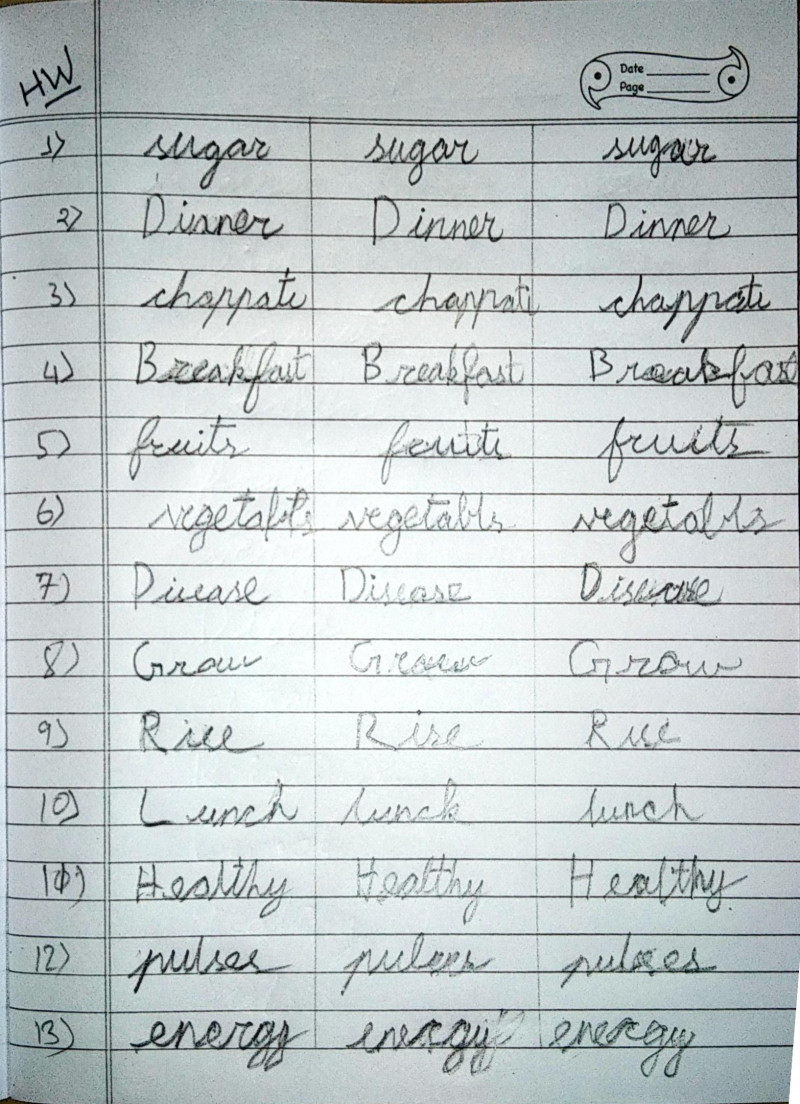 HW
Date
Page
1) sugar sugar sugar
2) Dinner Dinner Dinner
3) chappati chappati chappati
4) Breakfast Breakfast Breakfast
5) fruits fruits fruits
6) vegetabls vegetabls vegetabls
7) Disease Disease Disease
8) Grow Grow Grow
9) Rice Rise Rice
10) Lunch lunch lunch
11) Healthy Healthy Healthy
12) pulses pulses pulses
13) energy energy energy